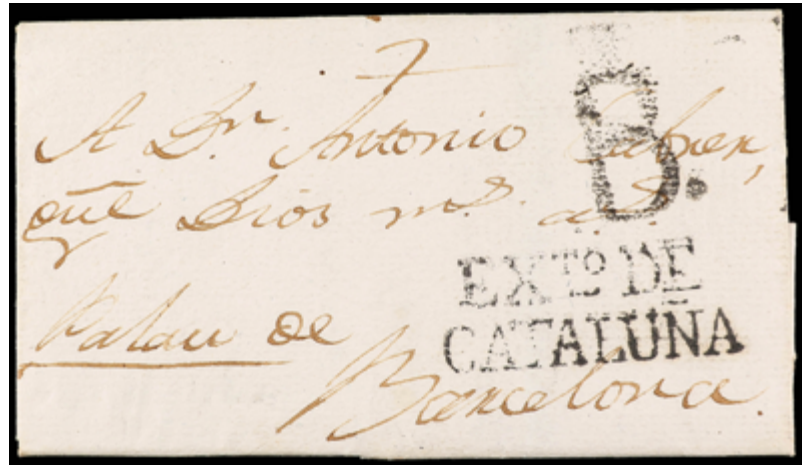 7
B.
A Dn. Antonio
que Dios ms. as.
EXTO DE
CATALUÑA
Palau de
Barcelona.